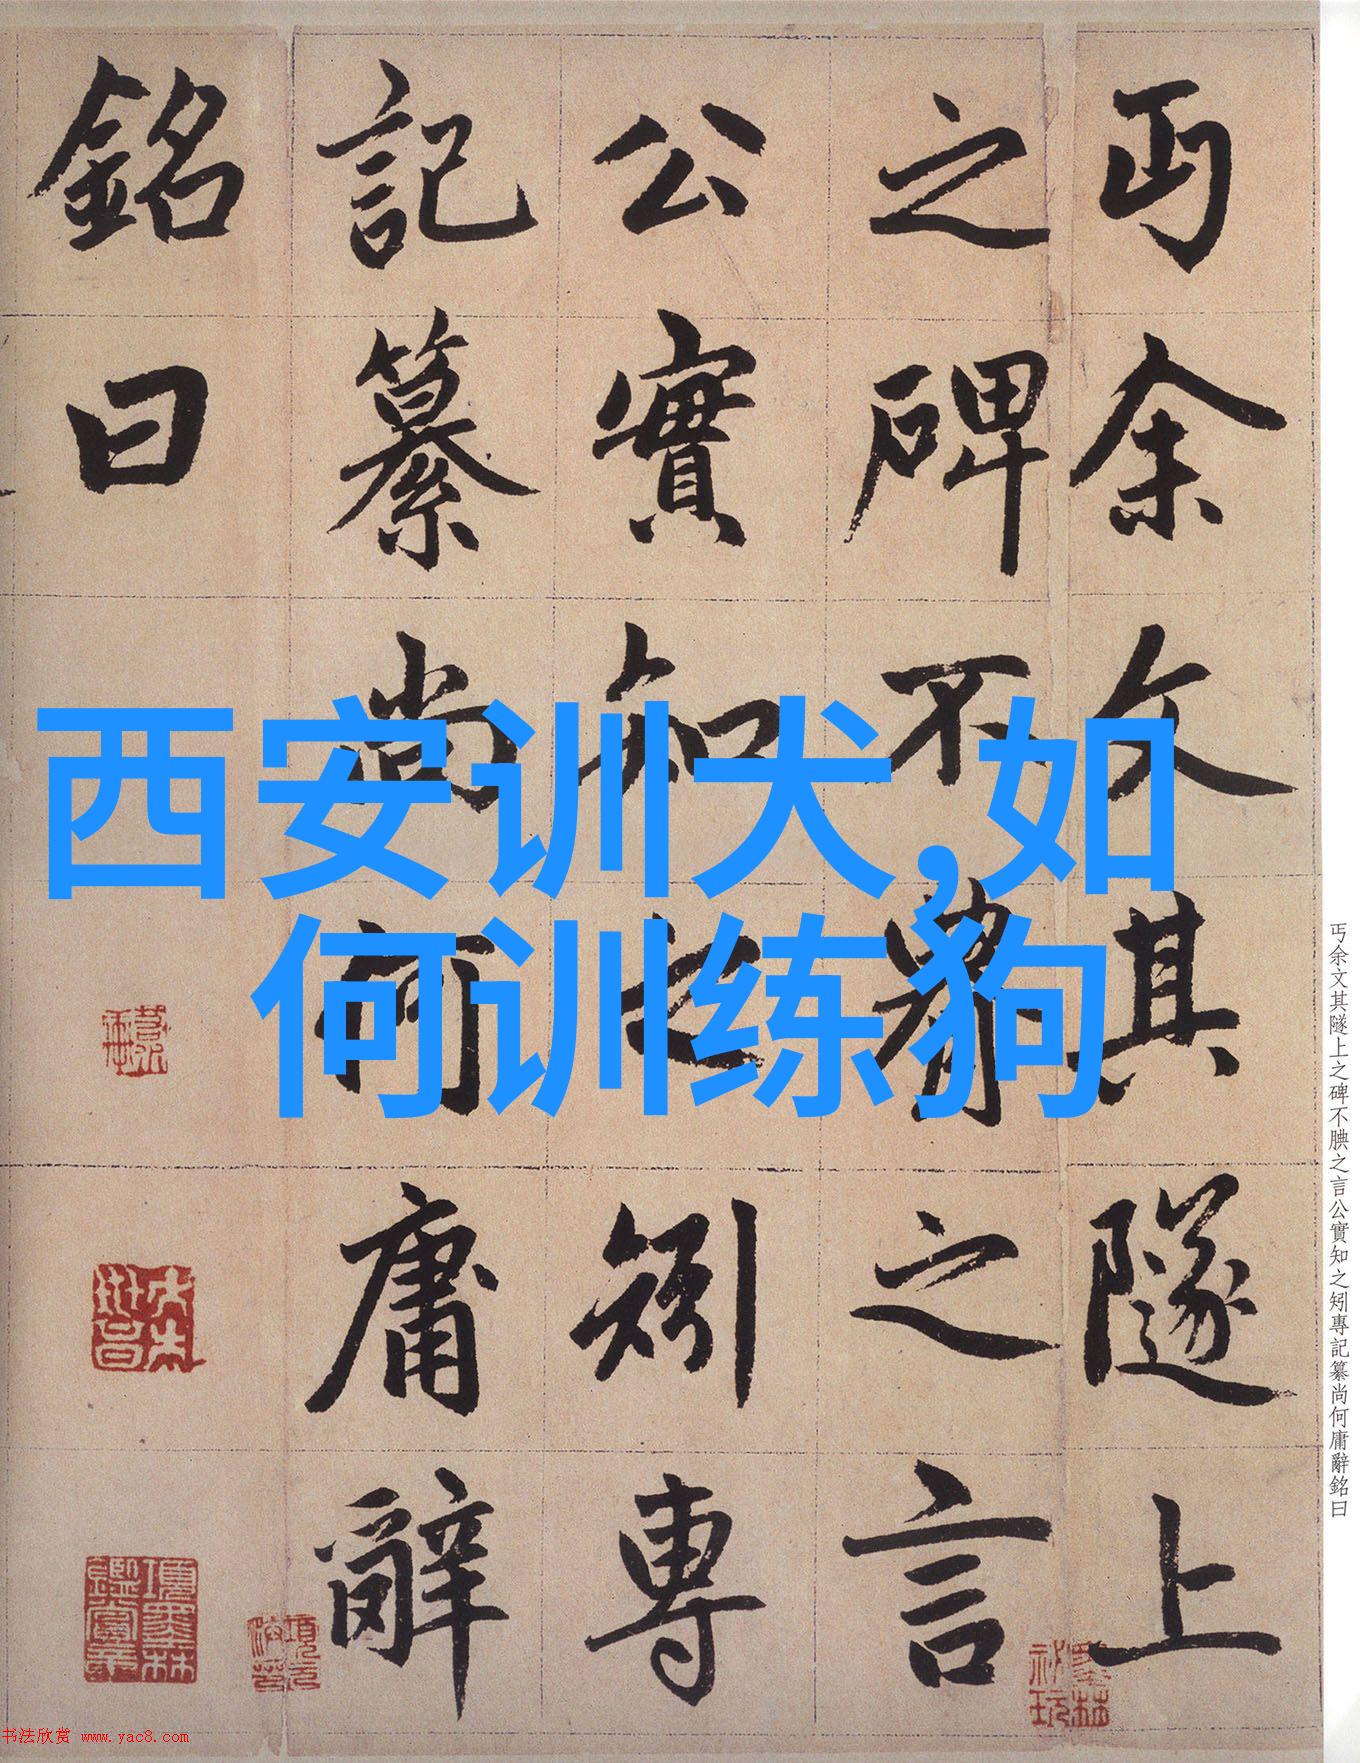 西安训犬,如
何训练狗
丐余文其隧上
之碑不腆之言
公實知之矧專
記纂尚何庸辭
銘曰
丐余文其隧上之碑不腆之言公實知之矧專記纂尚何庸辭銘曰
項墨林鑑賞章
墨林祕玩
书法欣赏 www.yac8.com